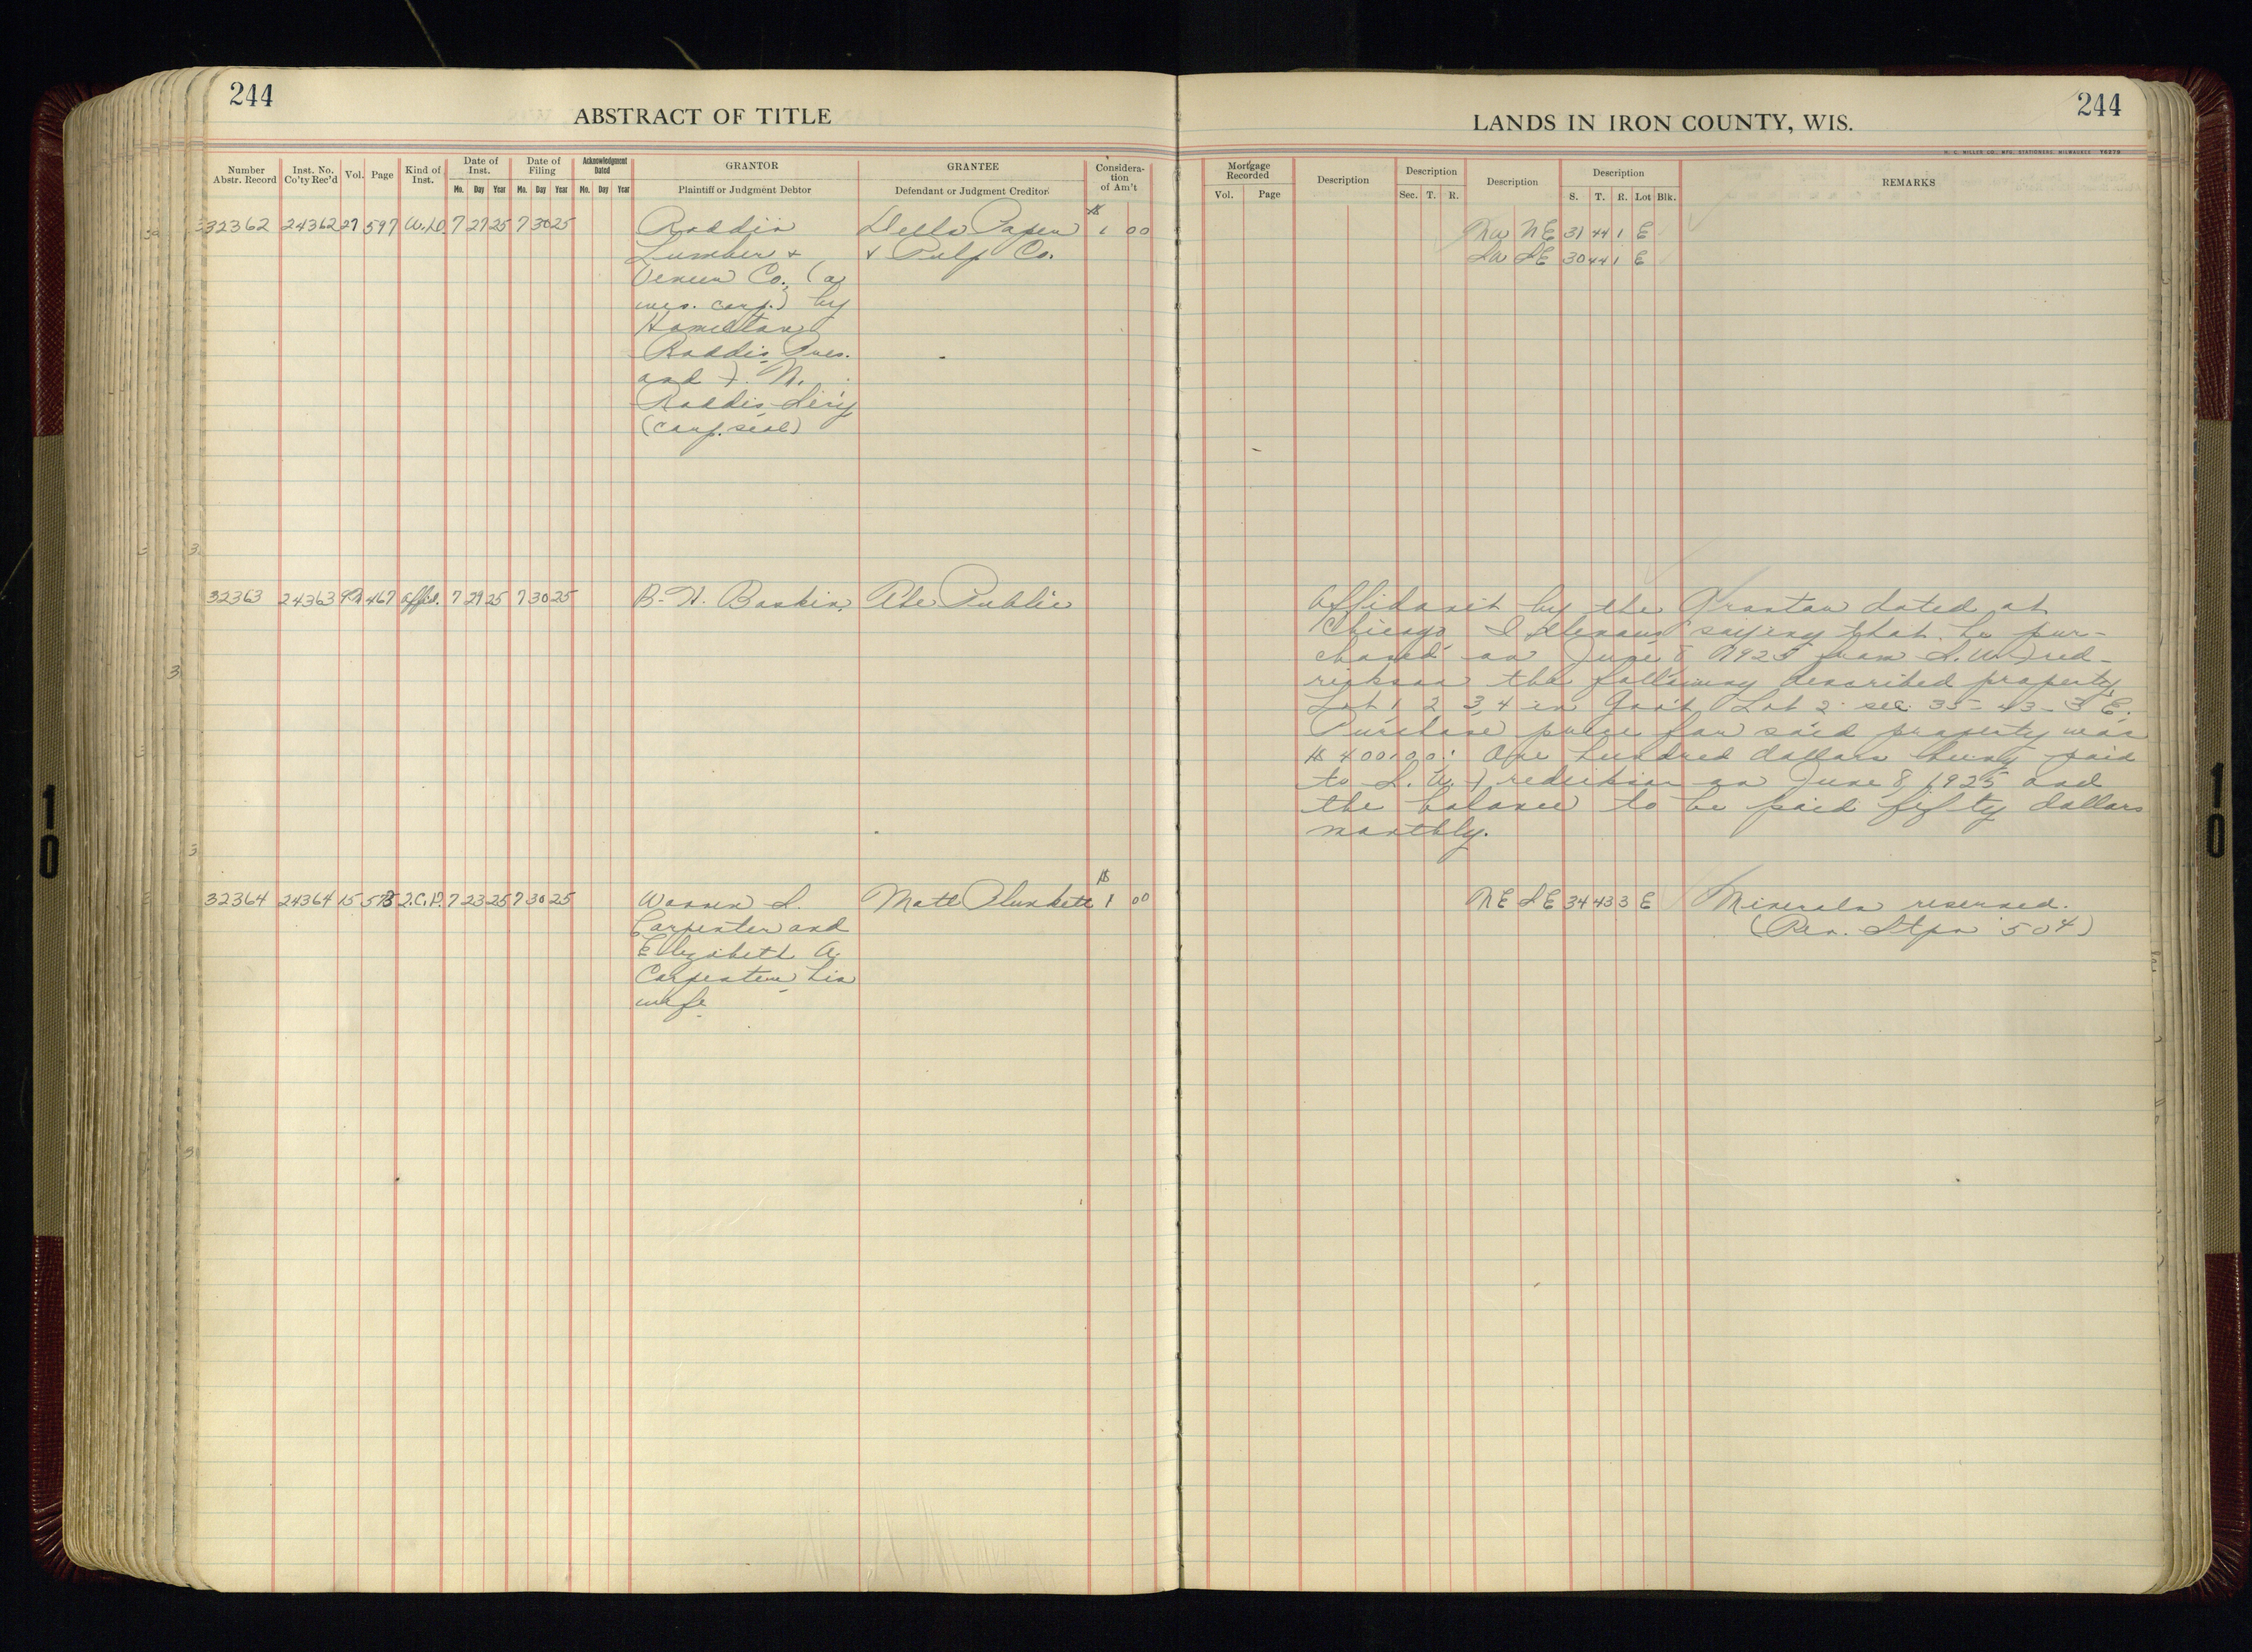 244
ABSTRACT OF TITLE
244
LANDS IN IRON COUNTY, WIS.
H. C. MILLER CO., MFG. STATIONERS, MILWAUKEE
Number Abstr. Record
Inst. No. Co'ty Rec'd
Vol.
Page
Kind of Inst.
Date of Inst.
Mo. Day Year
Date of Filing
Mo. Day Year
Acknowledgment Dated
Mo. Day Year
GRANTOR
Plaintiff or Judgment Debtor
GRANTEE
Defendant or Judgment Creditor
Considera-
tion
of Am't
Mortgage Recorded
Vol. Page
Description
Description
Sec. T. R.
Description
Description
S. T. R. Lot Blk.
REMARKS
32362 24362 27 597 W.D. 7 27 25 7 30 25 Roddis Dells Paper $ 1 00 NW NE 31 44 1 E
Lumber & & Pulp Co. SW SE 30 44 1 E
Veneer Co., (a
wis. corp.) by
Hamilton
Roddis Pres.
and
Roddis Sec'y
(corp. seal)
32363 24363 467 affid. 7 29 25 7 30 25 B. H. Baskin The Public Affidavit by the Grantor dated at
Chicago Illinois saying that he pur-
chased on June 8 1925 from S. W. Fred-
rickson the following described property
Lot 1 2 3, 4 in Gov't Lot 2 sec. 35-43-3 E.
Purchase price for said property was
$ 400.00: One hundred dollars being paid
to S. W. Fredrickson on June 8, 1925 and
the balance to be paid fifty dollars
monthly.
32364 24364 15 Q.C.D. 7 23 25 7 30 25 Warren S. Matt Plunkett $ 1 00 NE SE 34 43 3 E Minerals reserved.
Carpenter and (Rev. Stps 50¢)
Elizabeth A.
Carpenter his
wife
10
10